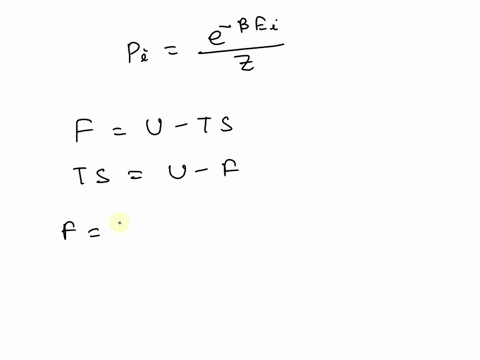 Pi = e^-βEi / Z
F = U - TS
TS = U - F
F =